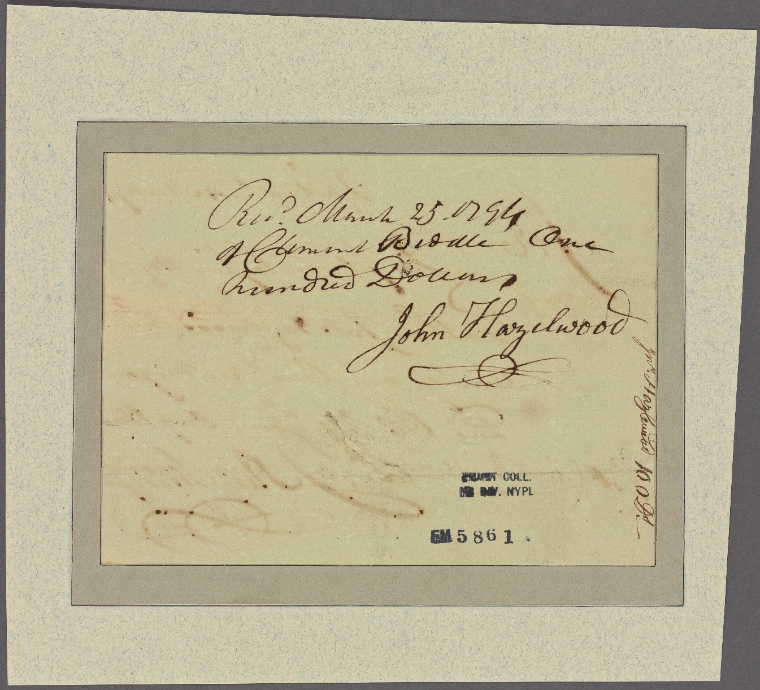 Recd. March 25. 1794
of Clement Biddle One
hundred Dollars
John Hazelwood
Jno. Hazlewood 100 Ds.
EMMET COLL.
MS DIV. NYPL
EM 5861